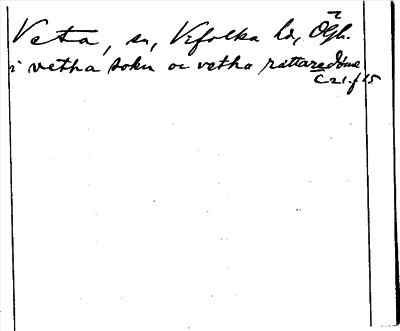 Veta, sn, Vifolka hd, Ögh.
i vetha sokn oc vetha rættaredøme
C 21. f 15